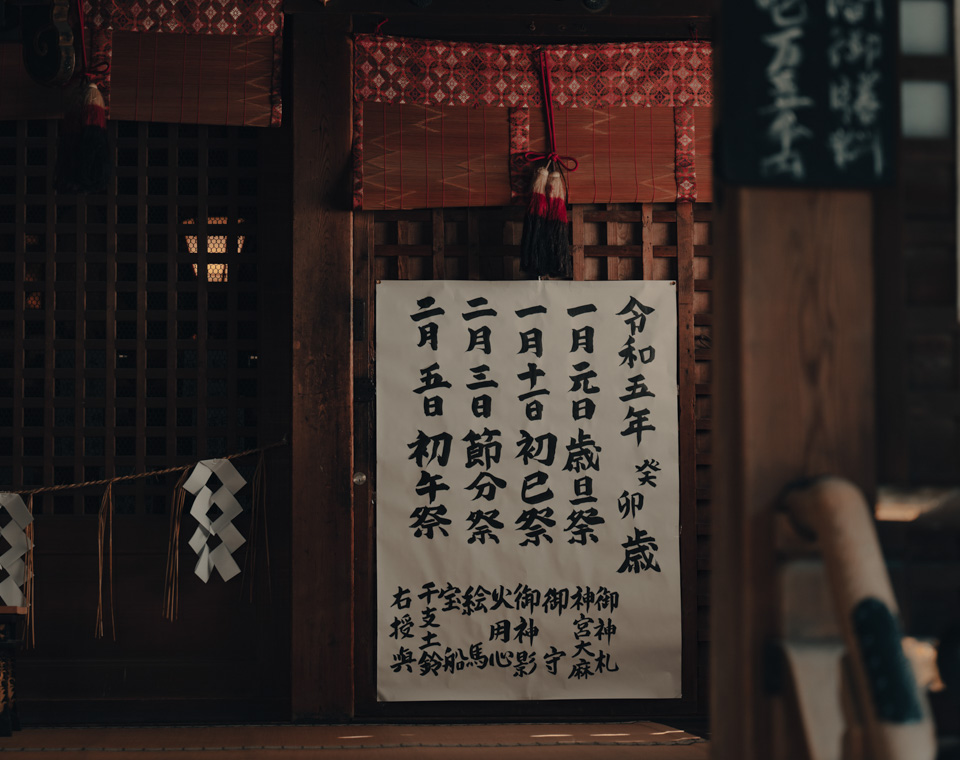 令和五年 癸卯歳
一月元日 歳旦祭
一月十一日 初巳祭
二月三日 節分祭
二月五日 初午祭
御神札
神宮大麻
御守
御神影
火用心
絵馬
宝船
干支土鈴
右授與